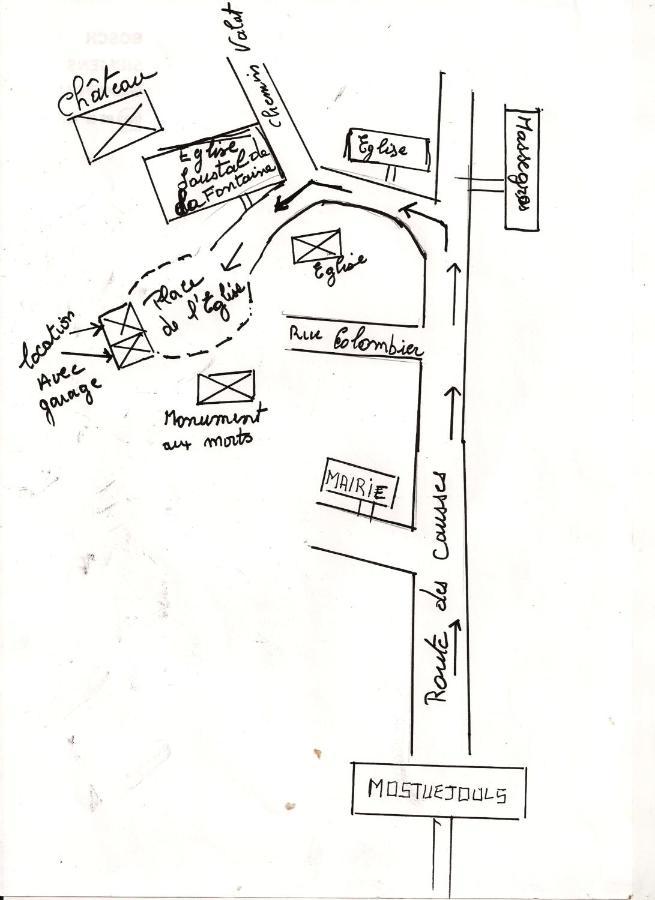 Château
Chemin Valat
Eglise
Loustal de
La Fontaine
Eglise
Massegros
Eglise
Place
de l'Eglise
location
Avec
garage
Rue Colombier
Monument
aux morts
MAIRIE
Route des Causses
MOSTUEJOULS